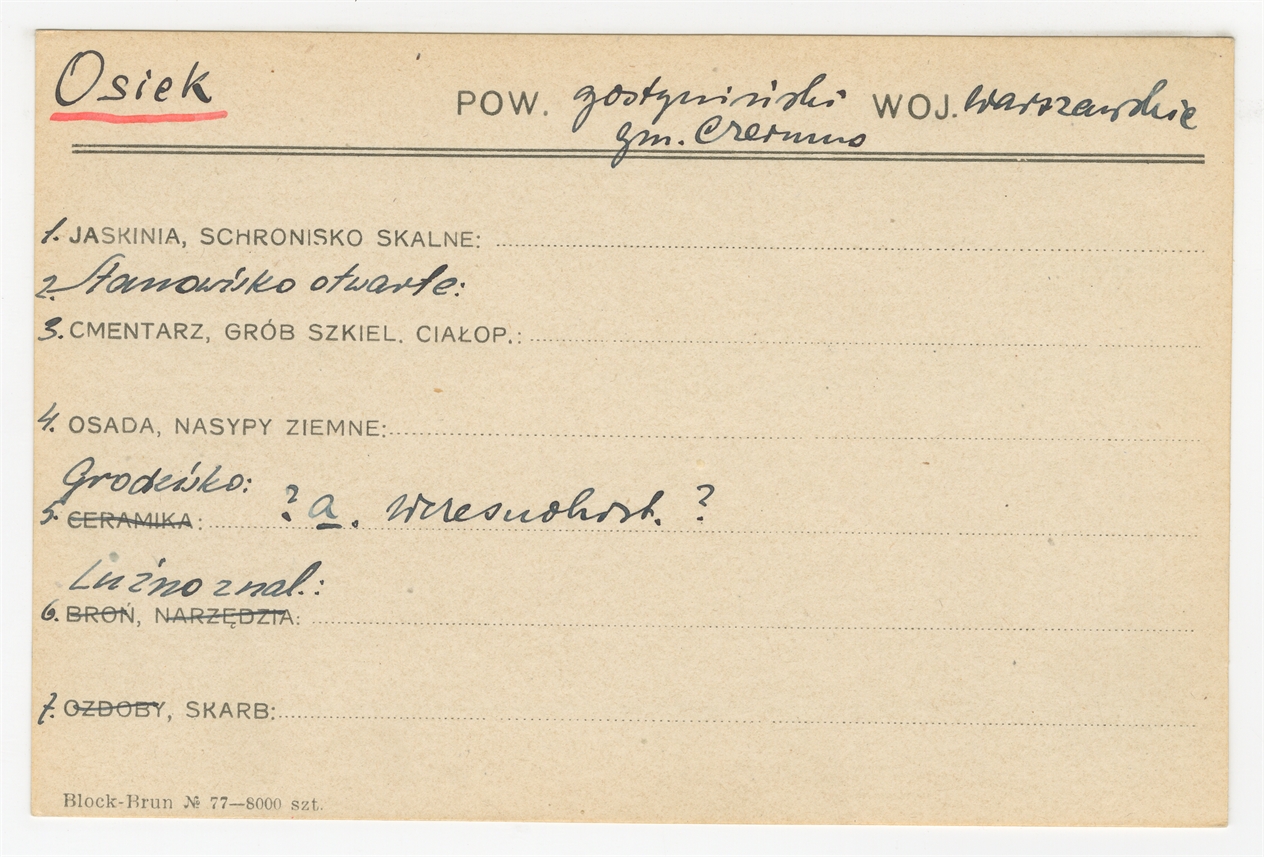 Osiek
POW. gostyniński WOJ. warszawskie
gm. Czermno
1. JASKINIA, SCHRONISKO SKALNE:
2. Stanowisko otwarte:
3. CMENTARZ, GRÓB SZKIEL. CIAŁOP.:
4. OSADA, NASYPY ZIEMNE:
Grodzisko:
5. CERAMIKA: ? a. wczesnohist. ?
Luźno znal.:
6. BROŃ, NARZĘDZIA:
7. OZDOBY, SKARB:
Block-Brun № 77—8000 szt.